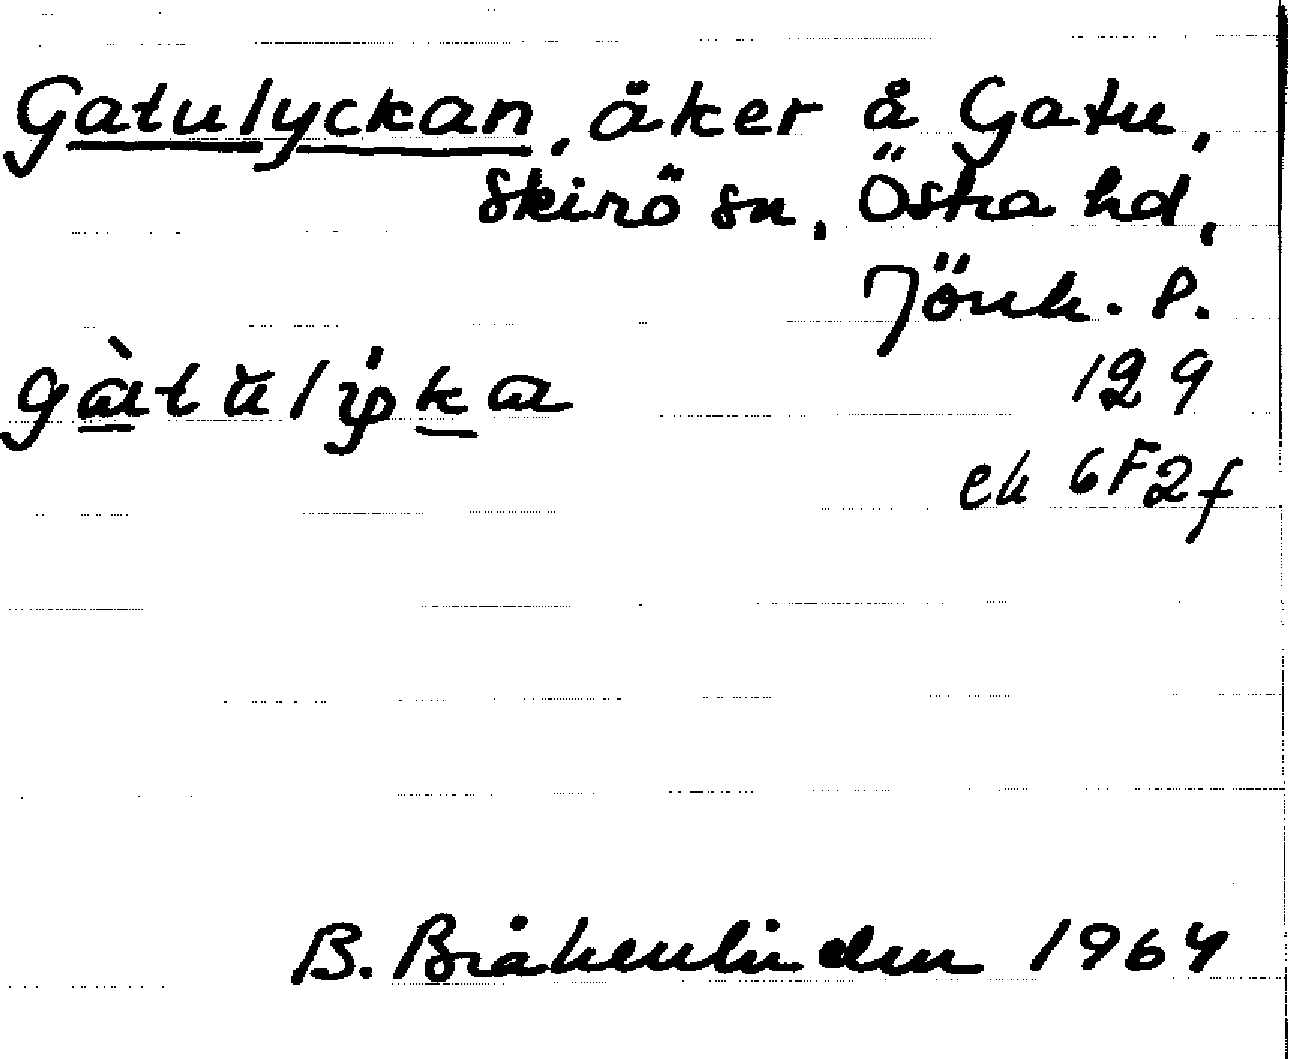 Gatulyckan, åker å Gatu,
Skirö sn, Östra hd,
Jönk. l.
gàtŭlyka
129
ek 6F2f
B. Bråkenlinden 1964